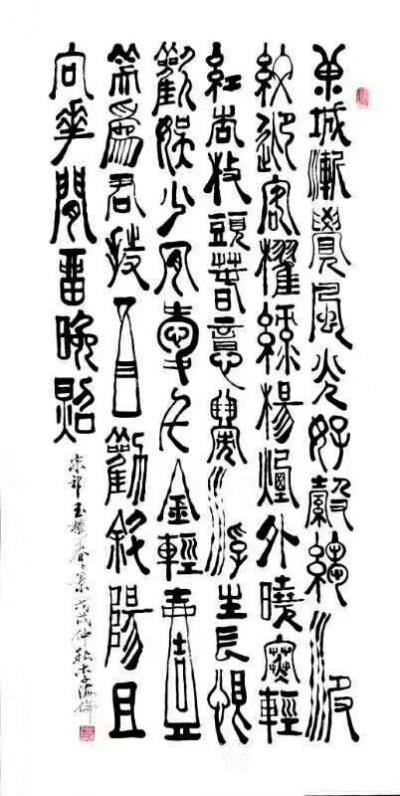 東城漸覺風光好縠縐波
紋迎客櫂綠楊煙外曉寒輕
紅杏枝頭春意鬧浮生長恨
歡娛少肯愛千金輕壹
笑為君持酒勸斜陽且
向花間留晚照
宋祁玉樓春々景戊戌仲秋李海偉